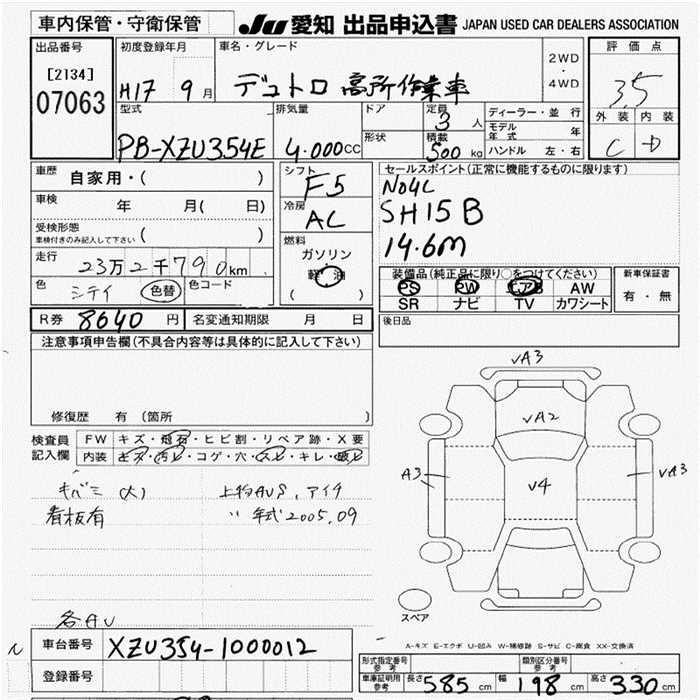 車内保管・守衛保管 JU 愛知 出品申込書 JAPAN USED CAR DEALERS ASSOCIATION
出品番号 初度登録年月 車名・グレード 2WD・4WD 評価点
[2134] 07063 H17 9月 デュトロ 高所作業車 3.5
型式 排気量 ドア 定員 3人 ディーラー・並行 外装 内装
PB-XZU354E 4.000cc 形状 積載 500kg モデル年式 年 C D
ハンドル 左・右
車歴 自家用・( ) シフト F5 セールスポイント(正常に機能するものに限ります)
車検 年 月( 日) 冷房 AC No4L
受検形態 車検付きのみ記入して下さい ( ) SH15B
燃料 ガソリン 軽油 ( ) 14.6m
走行 23万2千790km
色 シテイ 色替 色コード
装備品(純正品に限り○をつけてください) 新車保証書
PS PW エアB AW 有・無
SR ナビ TV カワシート
R券 8640円 名変通知期限 月 日 後日品
注意事項申告欄(不具合内容等は具体的に記入して下さい)
修復歴 有(箇所
検査員記入欄 FW キズ・飛石・ヒビ割・リペア跡・X要
内装 キズ・汚レ・コゲ・穴・スレ・キレ・破レ
キバミ(大) 上物AUS、アイチ
看板有 〃 年式2005.09
各AU
VA3
VA2
A3 V4 VA3
スペア
A-キズ E-エクボ U-凹み W-補修跡 S-サビ C-腐食 XX-交換済
車台番号 XZU354-1000012
登録番号
型式指定番号 参考 類別区分番号 参考
車庫証明用 参考 長さ 585cm 幅 198cm 高さ 330cm